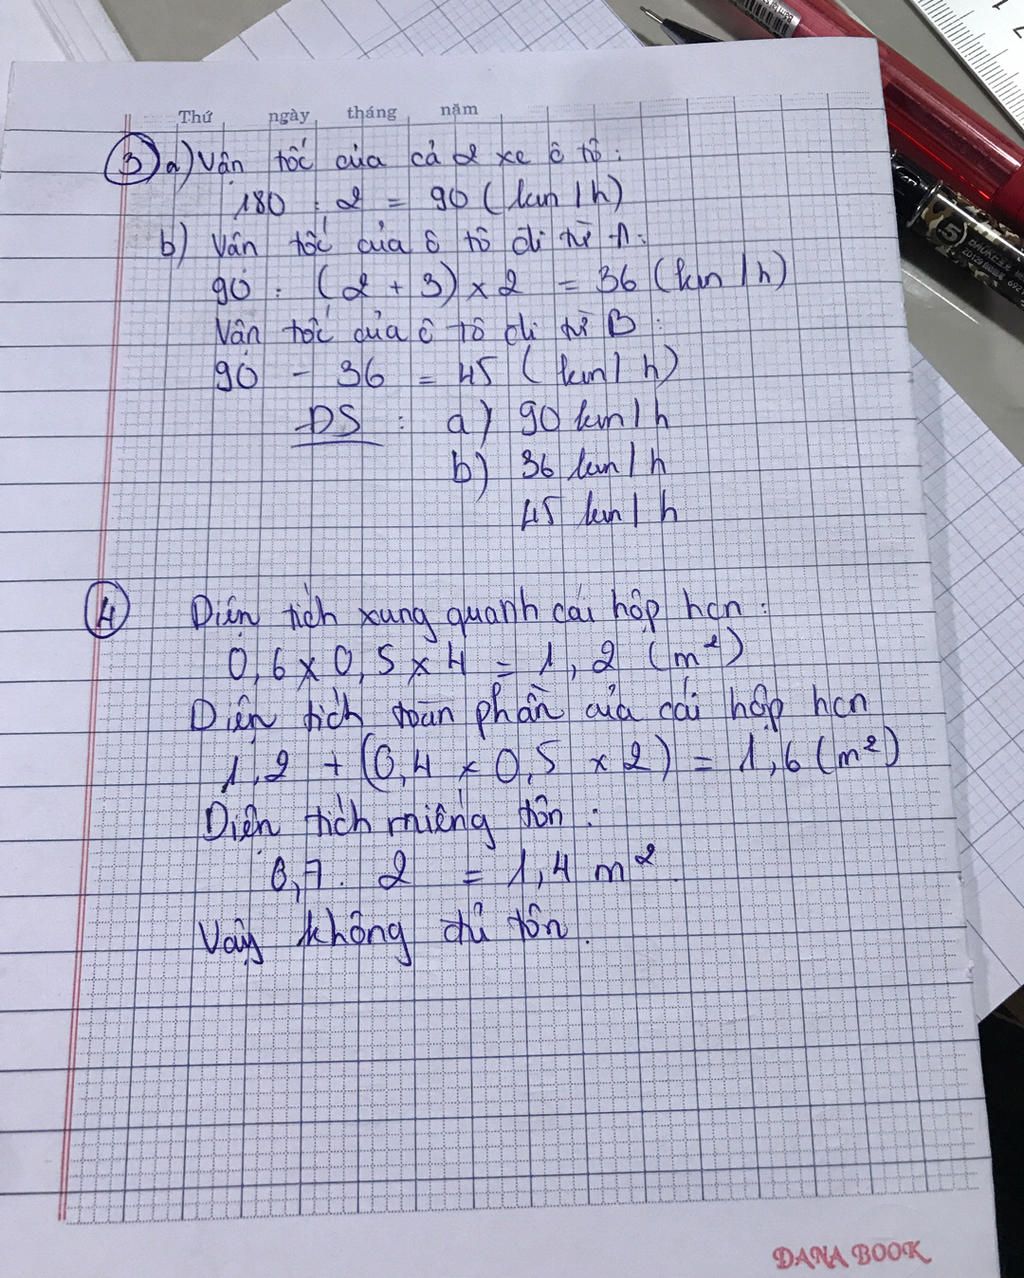 Thứ ngày tháng năm
③ a) Vận tốc của cả 2 xe ô tô:
180 : 2 = 90 (km/h)
b) Vận tốc của ô tô đi từ A:
90 : (2 + 3) x 2 = 36 (km/h)
Vận tốc của ô tô đi từ B:
90 - 36 = 45 (km/h)
ĐS : a) 90 km/h
b) 36 km/h
45 km/h
④ Diện tích xung quanh cái hộp hcn:
0,6 x 0,5 x 4 = 1,2 (m²)
Diện tích toàn phần của cái hộp hcn
1,2 + (0,4 x 0,5 x 2) = 1,6 (m²)
Diện tích miếng tôn:
0,7 . 2 = 1,4 m²
Vậy không đủ tôn.
DANA BOOK